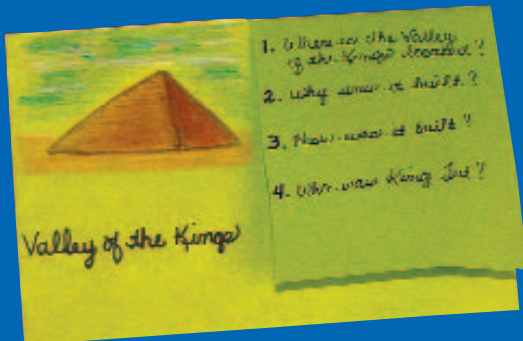 Valley of the Kings
1. Where is the Valley
of the Kings located?
2. Why was it built?
3. How was it built?
4. Who was King Tut?